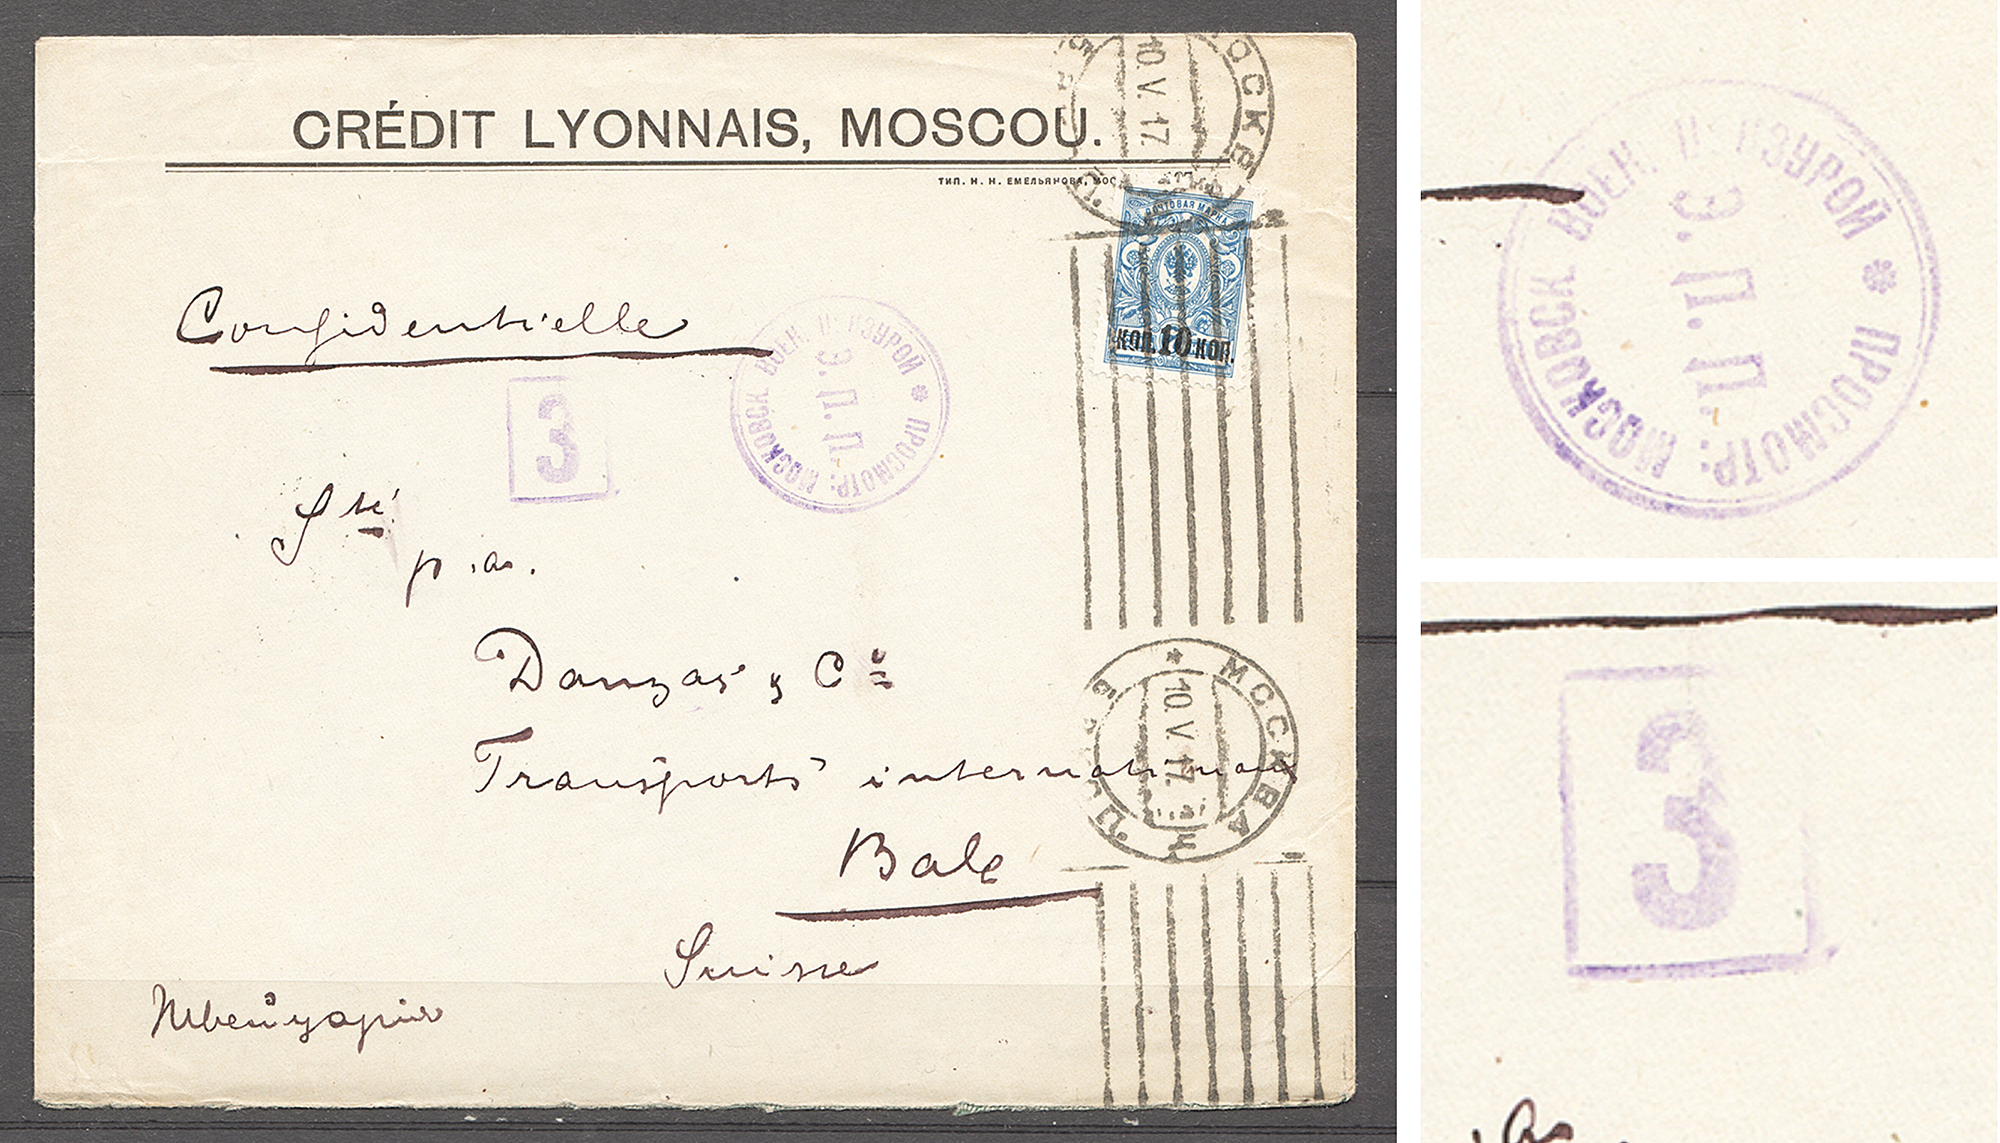 CRÉDIT LYONNAIS, MOSCOU.
ТИП. Н. Н. ЕМЕЛЬЯНОВА,
10. V. 17.
ПОЧТОВАЯ МАРКА
КОП. 10 КОП.
Confidentielle
ПРОСМОТР: МОСКОВСК ВОЕН.
Э. Д. П.
3
Sté
p.a.
Danzas & Cie
Transports internationaux
МОСКВА
10. V. 17.
Bale
Suisse
Швейцарія
ПРОСМОТР: МОСКОВСК ВОЕН.
Э. Д. П.
3